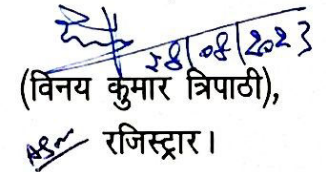 २8/08/2023
(विनय कुमार त्रिपाठी),
रजिस्ट्रार।